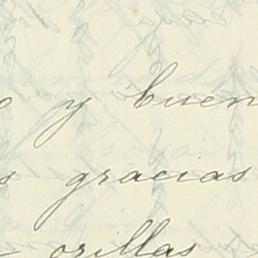 o y buen
s gracias
orillas